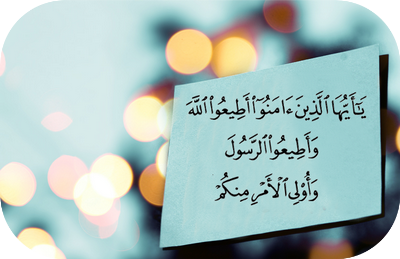 يَـٰٓأَيُّهَا ٱلَّذِينَ ءَامَنُوٓا۟ أَطِيعُوا۟ ٱللَّهَ
وَأَطِيعُوا۟ ٱلرَّسُولَ
وَأُو۟لِى ٱلْأَمْرِ مِنكُمْ